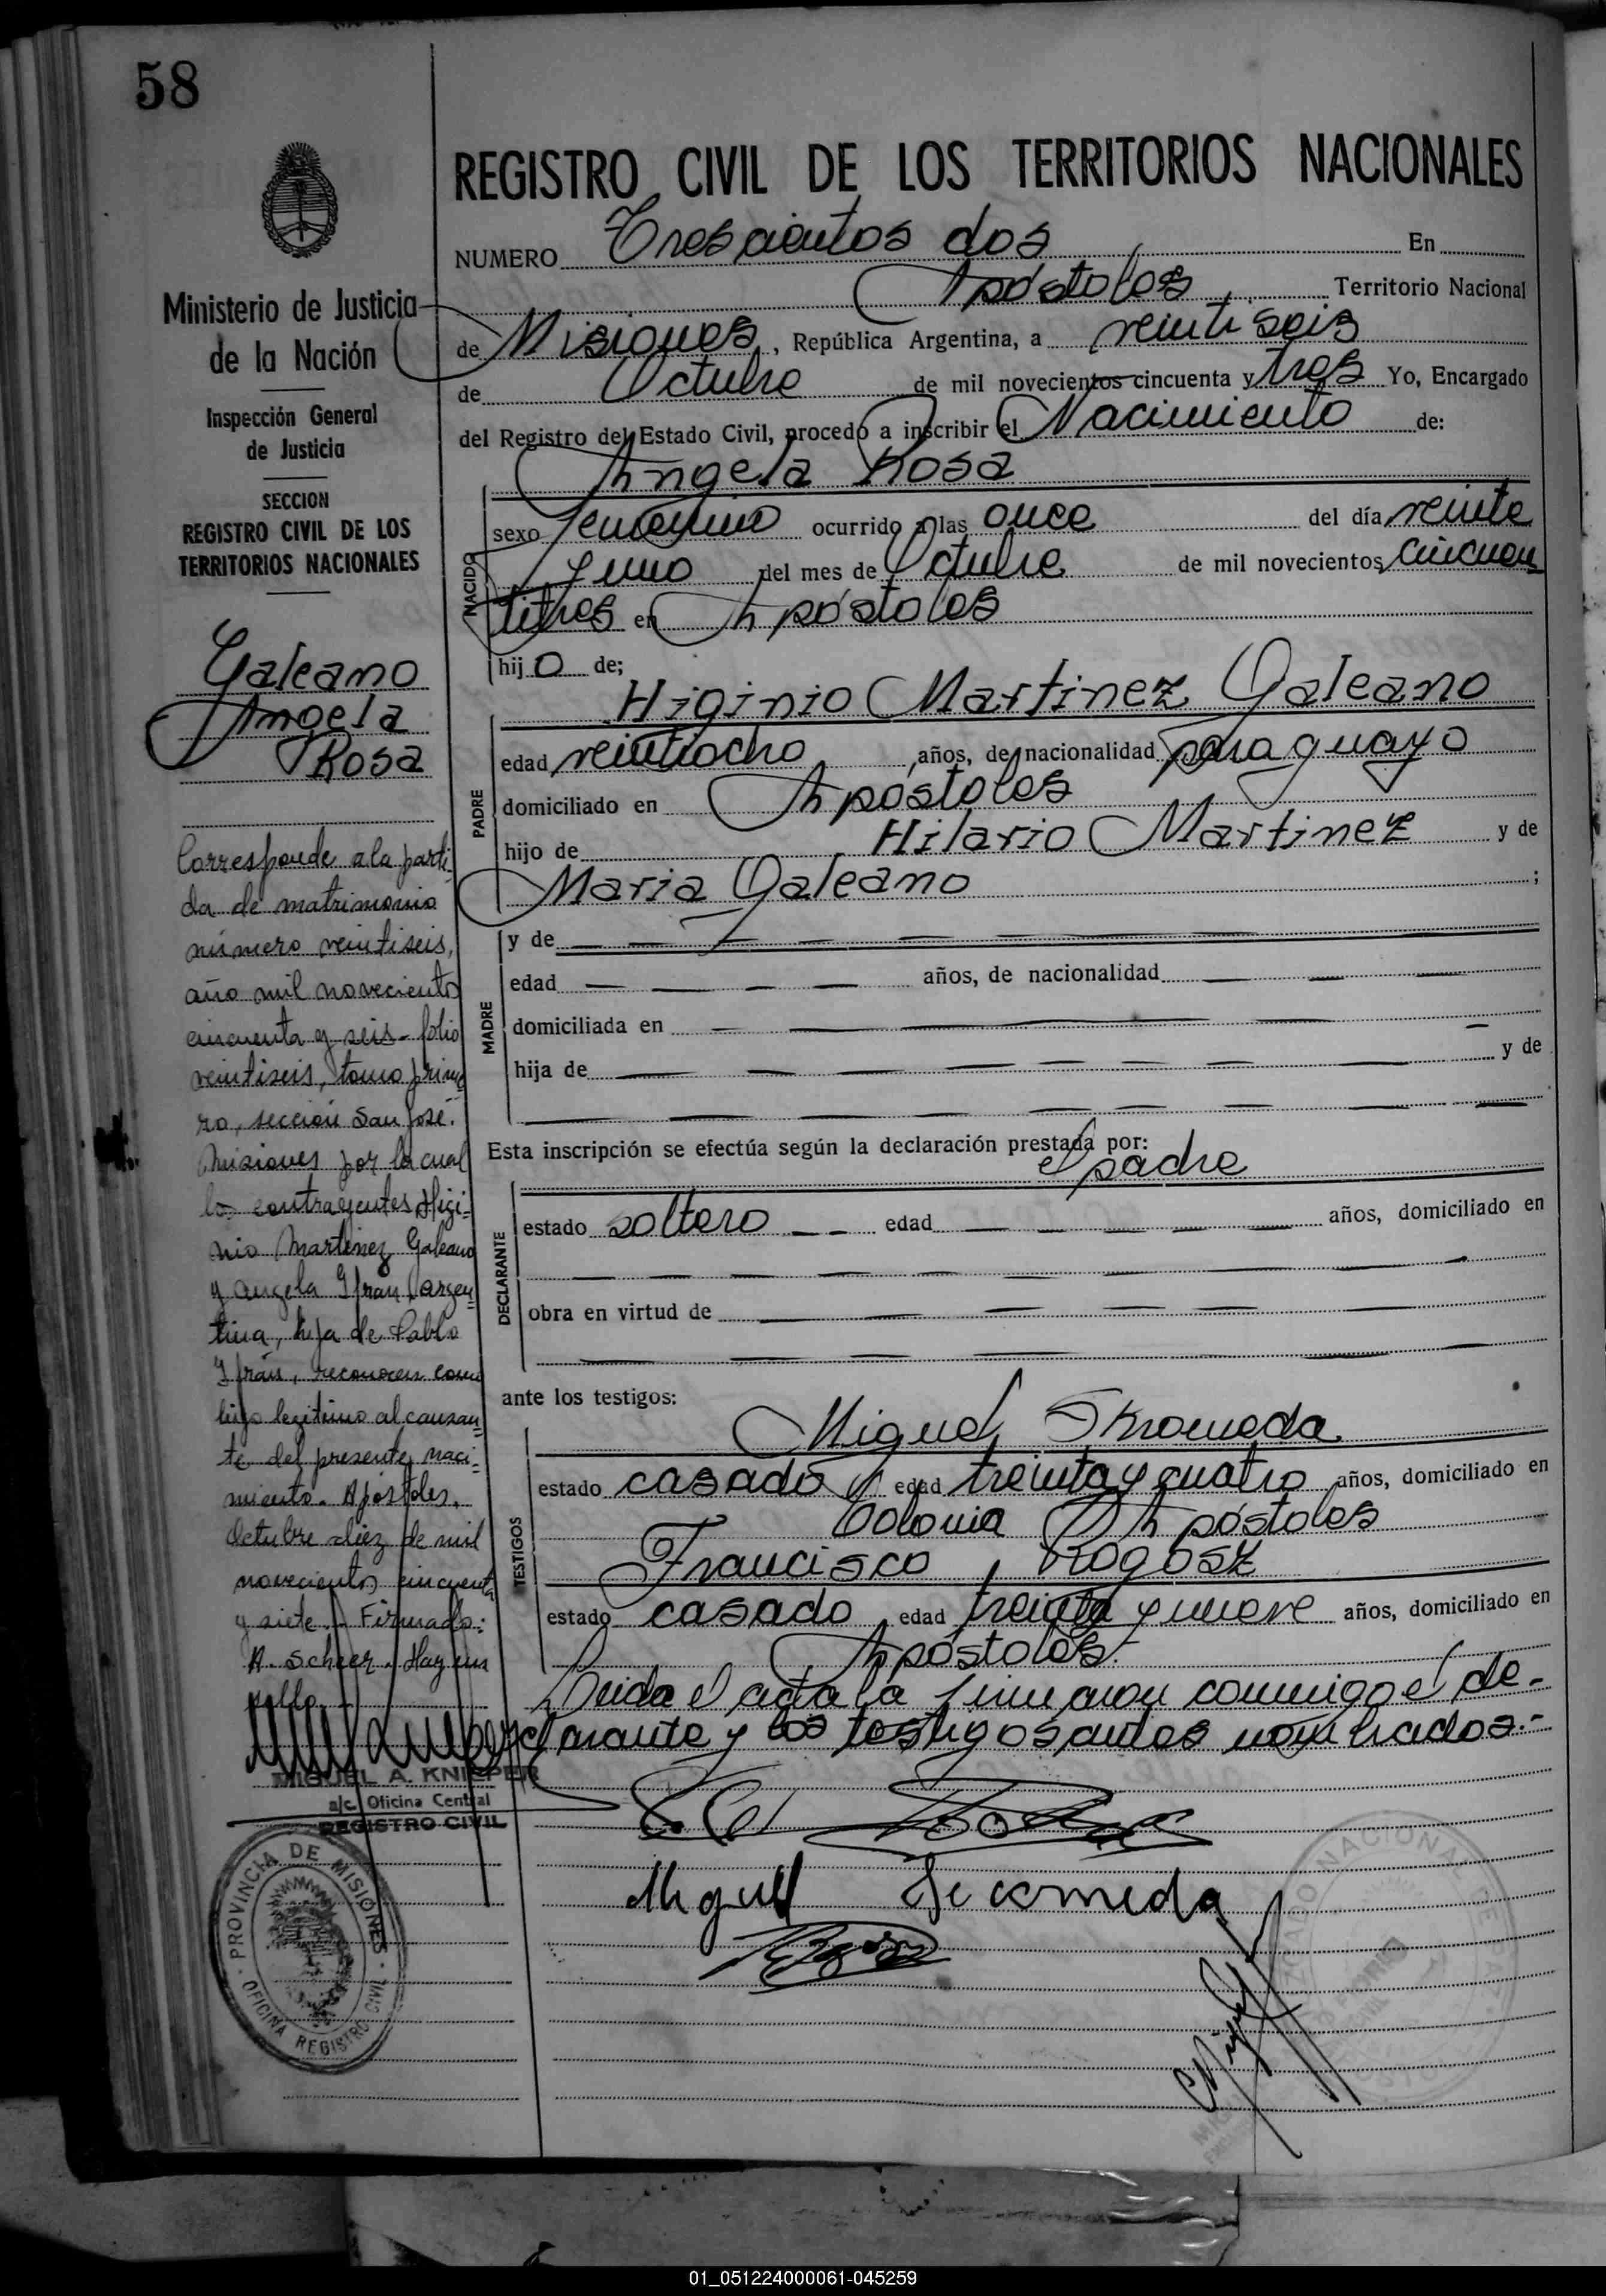 58
REGISTRO CIVIL DE LOS TERRITORIOS NACIONALES
NUMERO Trescientos dos En
Apóstoles, Territorio Nacional
de Misiones, República Argentina, a veintiseis
de Octubre de mil novecientos cincuenta y tres Yo, Encargado
del Registro del Estado Civil, procedo a inscribir el Nacimiento de:
Angela Rosa
NACIDO
sexo femenino ocurrido a las once del día veinte
y uno del mes de Octubre de mil novecientos cincuen
titres en Apóstoles
hijo de;
Higinio Martinez Galeano
PADRE
edad veintiocho años, de nacionalidad paraguayo
domiciliado en Apóstoles
hijo de Hilario Martinez y de
Maria Galeano ;
MADRE
y de — — — — — — —
edad — — — — años, de nacionalidad — — —
domiciliada en — — — — —
hija de — — — — — — — y de
— — — — — — — —
Esta inscripción se efectúa según la declaración prestada por:
el padre
DECLARANTE
estado soltero — — edad — — — — años, domiciliado en
— — — — — — — —
obra en virtud de — — — — —
— — — — — — —
ante los testigos:
TESTIGOS
Miguel Skromeda
estado casado edad treinta y cuatro años, domiciliado en
Colonia Apóstoles
Francisco Rogosz
estado casado edad treinta y nueve años, domiciliado en
Apóstoles.
Leida el acta la firmaron conmigo el de-
clarante y los testigos antes nombrados.-
Miguel
Ministerio de Justicia
de la Nación
Inspección General
de Justicia
SECCION
REGISTRO CIVIL DE LOS
TERRITORIOS NACIONALES
Galeano
Angela
Rosa
Corresponde a la parti-
da de matrimonio
número veintiseis,
año mil novecientos
cincuenta y seis- folio
veintiseis, tomo prime
ro, sección San José.
Misiones por la cual
los contrayentes Higi-
nio Martinez Galeano
y Angela Ifrán, argen
tina, hija de Pablo
Ifrán, reconocen como
hijo legitimo al causan
te del presente naci-
miento. Apóstoles,
Octubre diez de mil
novecientos cincuenta
y siete.- Firmado:
A. Scheer. Hay un
sello.-
MIGUEL A. KNIEPER
a/c. Oficina Central
REGISTRO CIVIL
PROVINCIA DE MISIONES
OFICINA REGISTRO CIVIL
01_051224000061-045259